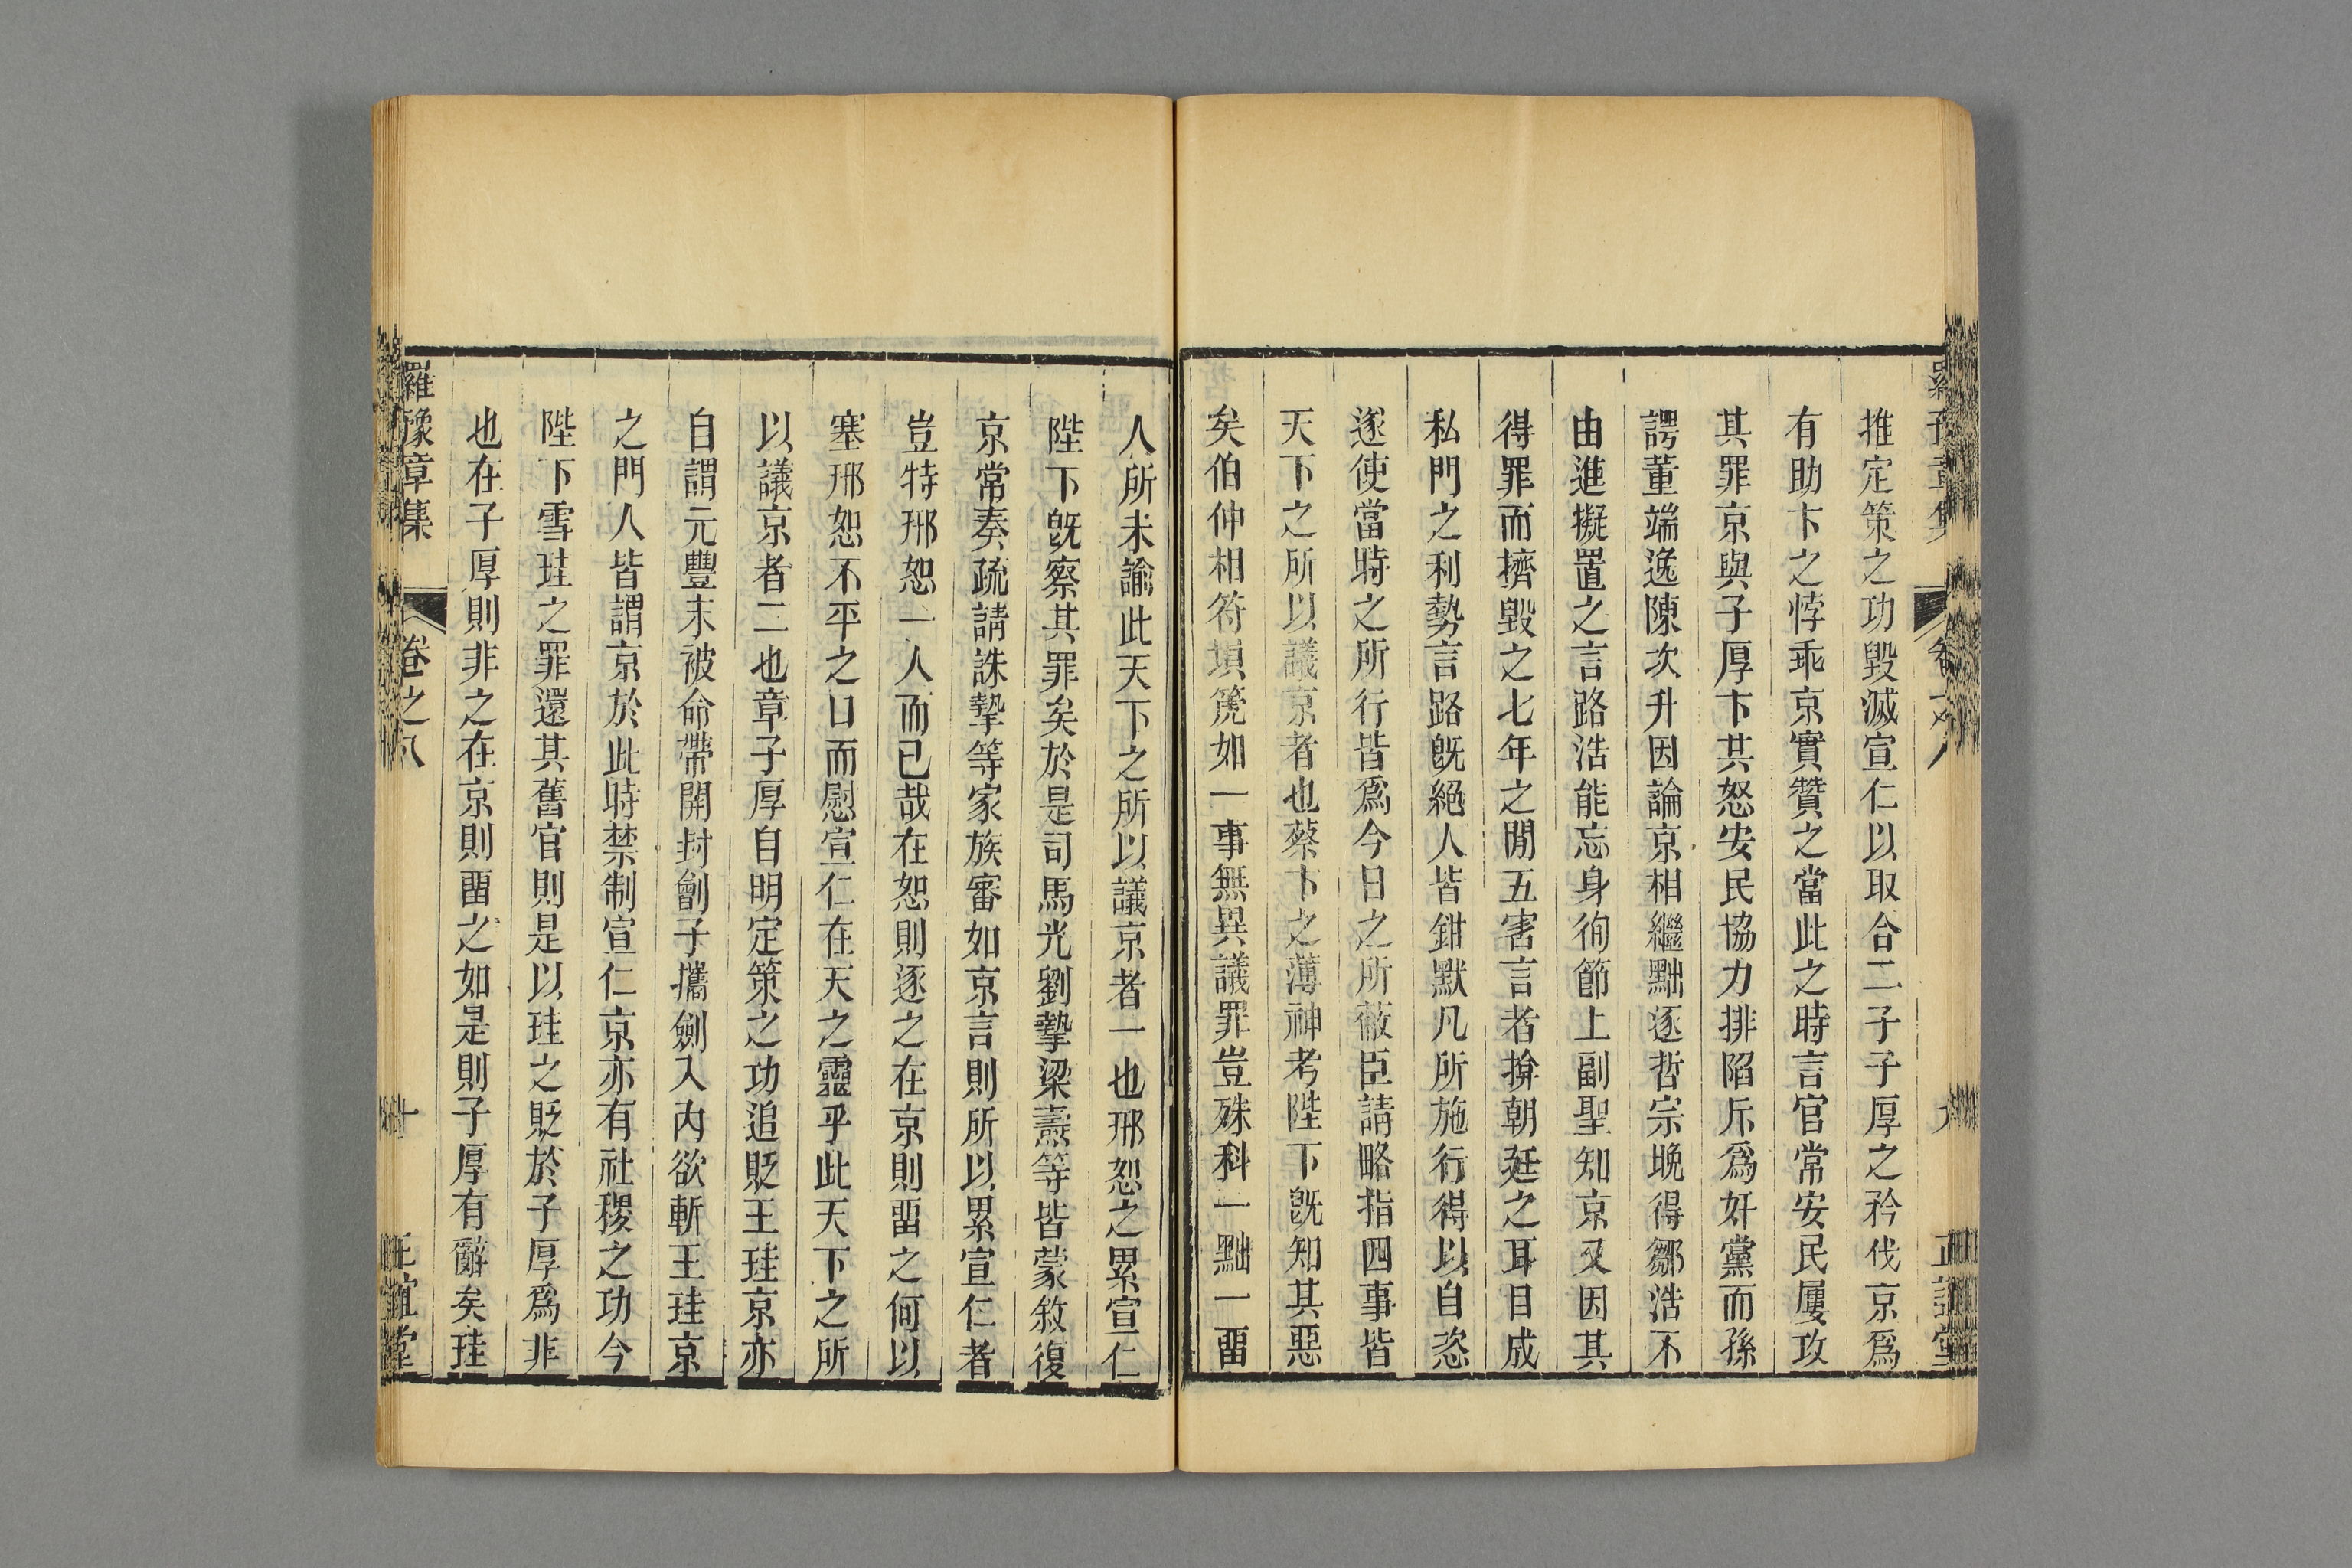 推定策之功毀滅宣仁以取合二子子厚之矜伐京爲
有助卞之悖乖京實贊之當此之時言官常安民屢攻
其罪京與子厚卞共怒安民協力排陷斥爲奸黨而孫
諤董端逸陳次升因論京相繼黜逐哲宗晚得鄒浩不
由進擬置之言路浩能忘身徇節上副聖知京又因其
得罪而擠毀之七年之閒五害言者揜朝廷之耳目成
私門之利勢言路既絕人皆鉗默凡所施行得以自恣
遂使當時之所行皆爲今日之所蔽臣請略指四事皆
天下之所以議京者也蔡卞之薄神考陛下既知其惡
矣伯仲相符塤篪如一事無異議罪豈殊科一黜一畱
人所未諭此天下之所以議京者一也邢恕之累宣仁
陛下既察其罪矣於是司馬光劉摯梁燾等皆蒙敘復
京常奏疏請誅摯等家族審如京言則所以累宣仁者
豈特邢恕一人而已哉在恕則逐之在京則畱之何以
塞邢恕不平之口而慰宣仁在天之靈乎此天下之所
以議京者二也章子厚自明定策之功追貶王珪京亦
自謂元豐末被命帶開封劊子攜劍入內欲斬王珪京
之門人皆謂京於此時禁制宣仁京亦有社稷之功今
陛下雪珪之罪還其舊官則是以珪之貶於子厚爲非
也在子厚則非之在京則畱之如是則子厚有辭矣珪
羅豫章集 卷之八 十 正誼堂